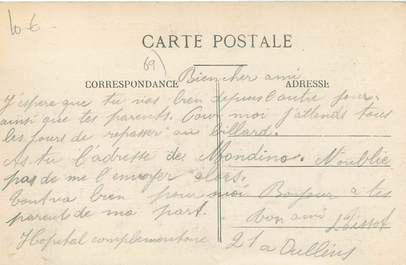 10 €
69)
CARTE POSTALE
CORRESPONDANCE
ADRESSE
Bien cher ami
J'espere que tu vas bien depuis l'autre jour
ainsi que tes parents. Pour moi j'attends tous
les jours de repasser au billard.
As-tu l'adresse de Mondino. N'oublie
pas de me l'envoyer alors.
Tout va bien pour moi Bonjour a tes
parent de ma part. Ton ami
Hopital complementaire 21 a Oullins